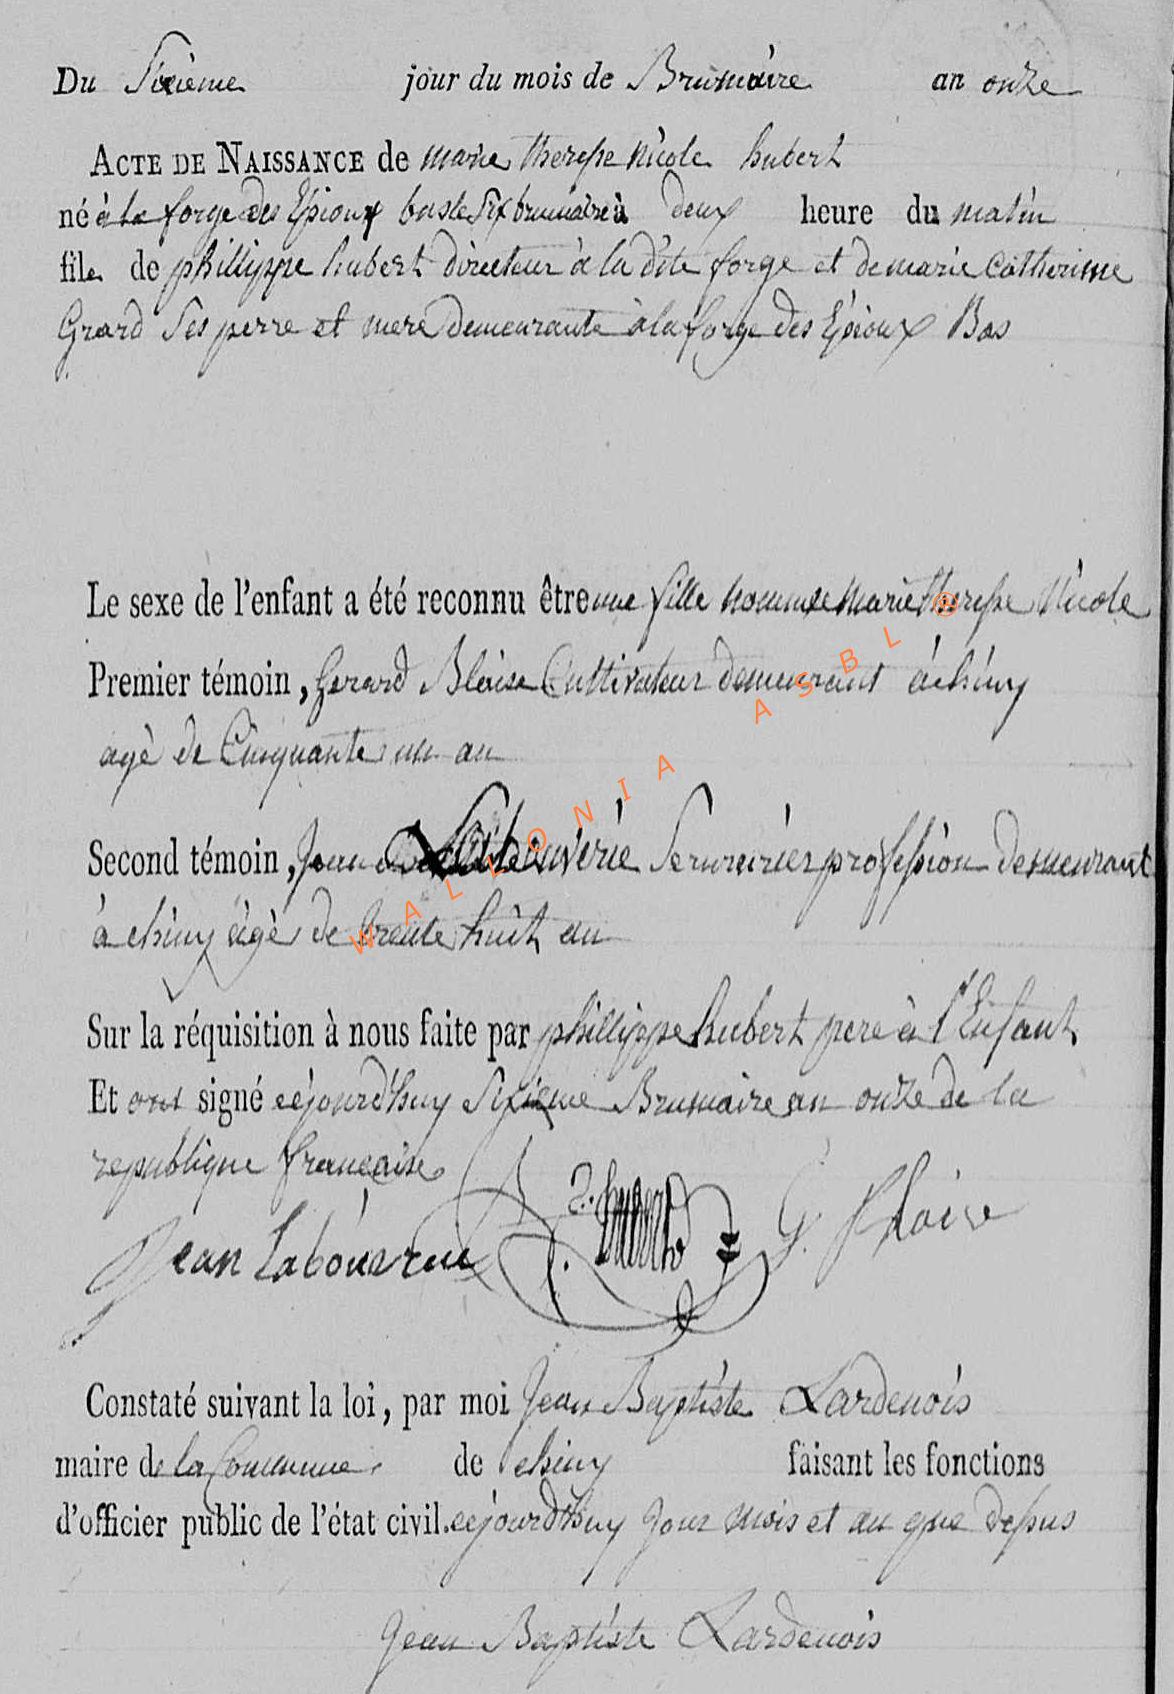 Du Sixieme jour du mois de Brumaire an onze
ACTE DE NAISSANCE de marie theresse Nicole hubert
né à la forge des Epioux bas le Six brumaire à deux heure du matin
file de phillippe hubert directeur à la dite forge et de marie Catherinne
Grard Ses perre et mere demeurante à la forge des Epioux Bas
Le sexe de l'enfant a été reconnu être une fille nommee Marie theresse Nicole
Premier témoin, Gerard Blaise Cultivateur demeurant à chiny
agé de Cinquante un an
Second témoin, Jean Serrurier profession demeurant
à chiny agé de trente huit an
Sur la réquisition à nous faite par phillippe hubert pere à l'Enfant
Et ont signé cejourd'huy Sixieme Brumaire an onze de la
republique francaise
Jean P. hubert G. Blaise
Constaté suivant la loi, par moi Jean Baptiste Lardenois
maire de la Commune de chiny faisant les fonctions
d'officier public de l'état civil. cejourd'huy Jour mois et an que dessus
Jean Baptiste Lardenois
WALLONIA ASBL ®